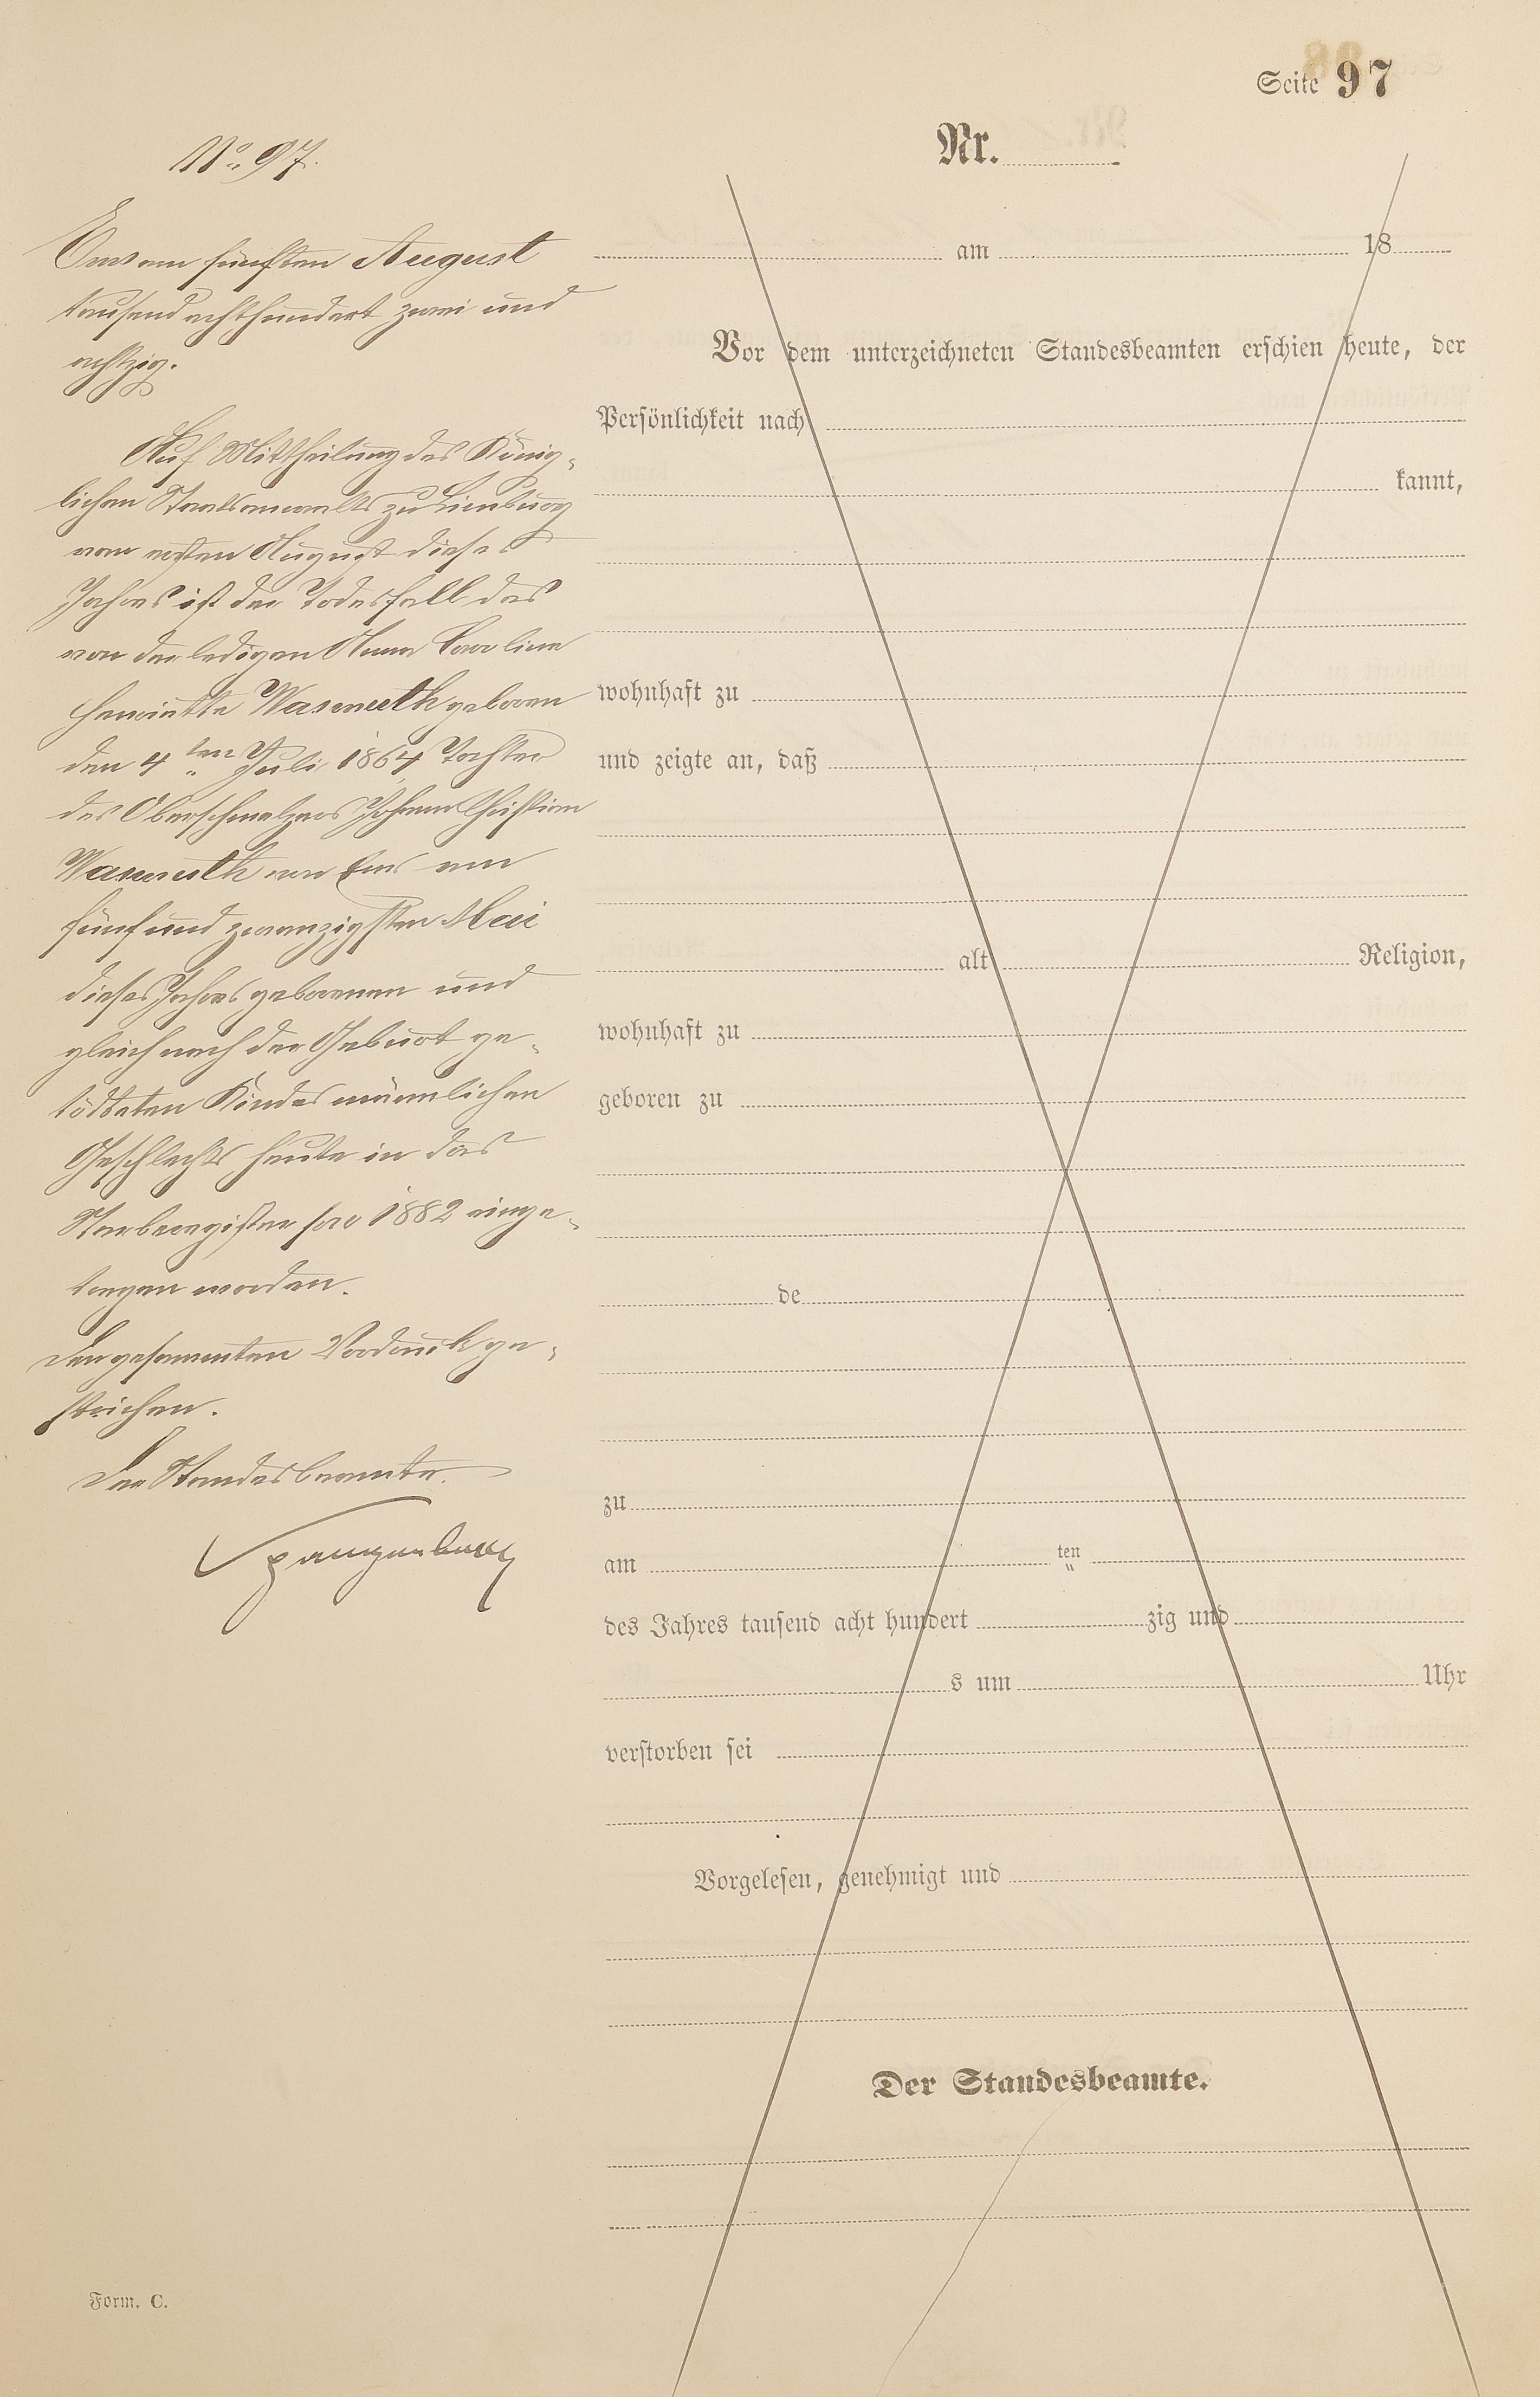 Seite 97
No. 97.
Ems am fünften August
tausend achthundert zwei und
achtzig.
Auf Mittheilung des König-
lichen Staatsanwalts zu Limburg
vom ersten August dieses
Jahres ist der Todesfall des
von der ledigen Anna Caroline
Henriette Wasmuth geboren
den 4ten Juli 1864 Tochter
des Oberschmelzers Johann Christian
Wasmuth von Ems am
fünfund zwanzigsten Mai
dieses Jahres geborenen und
gleich nach der Geburt ge-
tödteten Kindes männlichen
Geschlechts heute in das
Sterberegister pro 1882 einge-
tragen worden.
Den gesammten Vordruck ge-
strichen.
Der Standesbeamte.
Spangenberg
Nr.
am 18
Vor dem unterzeichneten Standesbeamten erschien heute, der
Persönlichkeit nach
kannt,
wohnhaft zu
und zeigte an, daß
alt Religion,
wohnhaft zu
geboren zu
de
zu
am ten
des Jahres tausend acht hundert zig und
s um Uhr
verstorben sei
Vorgelesen, genehmigt und
Der Standesbeamte.
Form. C.